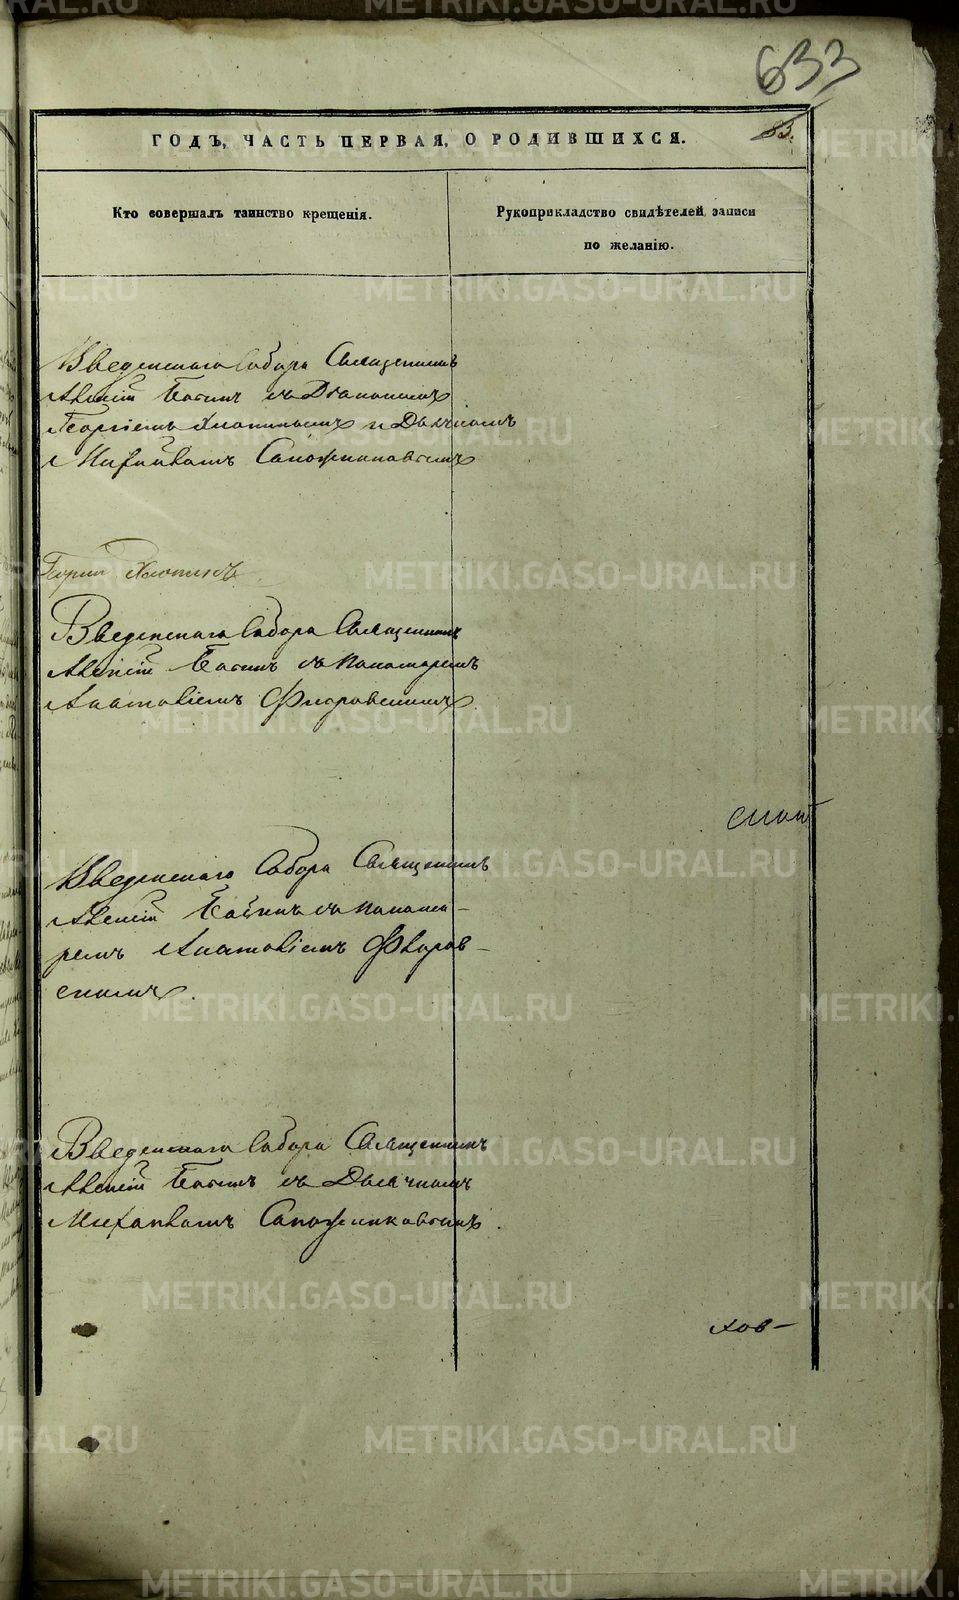 633
83.
ГОДЪ, ЧАСТЬ ПЕРВАЯ, О РОДИВШИХСЯ.
Кто совершалъ таинство крещенія.
Рукоприкладство свидѣтелей записи
по желанію.
Введенскаго Собора Священникъ
съ Діакономъ
Георгіемъ и Дьячкомъ
Михаиломъ Сапожниковымъ
Введенскаго Собора Священникъ
съ Пономаремъ
Анатоліемъ Флоровскимъ
Введенскаго Собора Священникъ
съ Понома-
ремъ Анатоліемъ Флоров-
скимъ.
Введенскаго Собора Священникъ
съ Дьячкомъ
Михаиломъ Сапожниковымъ.
хов-
METRIKI.GASO-URAL.RU